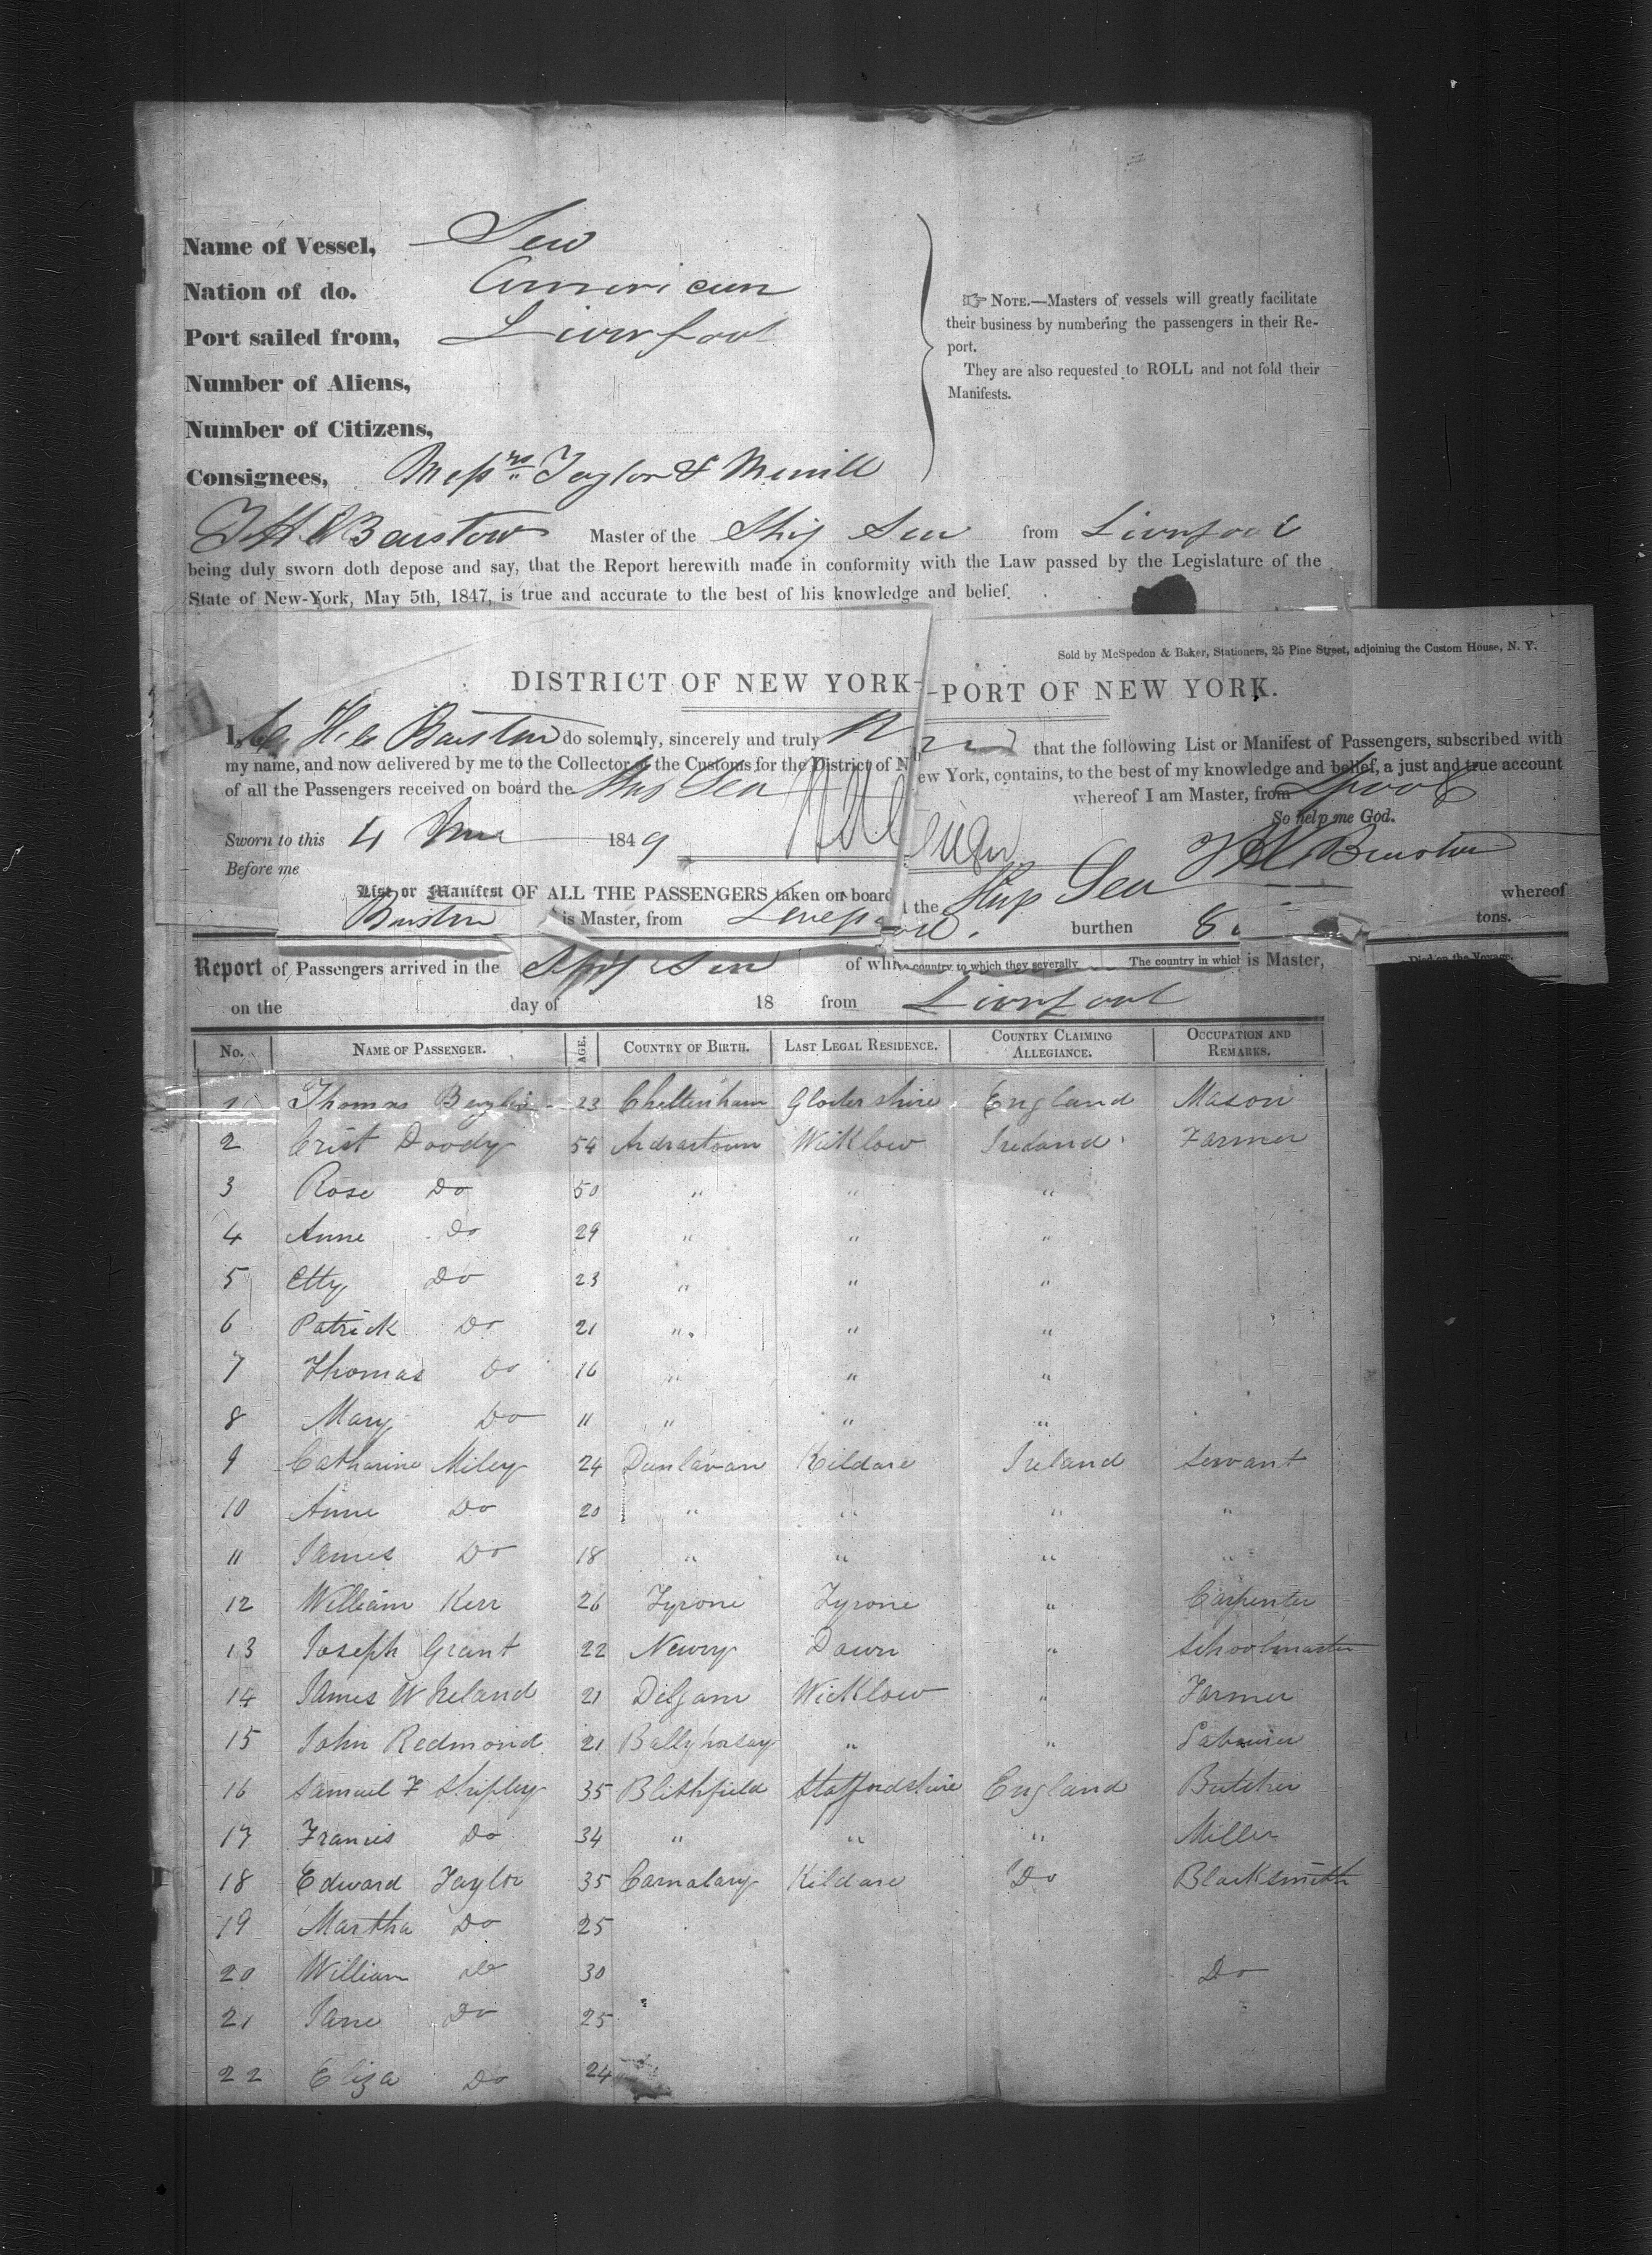 Name of Vessel, Sea
Nation of do. American
Port sailed from, Liverpool
Number of Aliens,
Number of Citizens,
Consignees, Messrs Taylor & Merrill
☞ NOTE.—Masters of vessels will greatly facilitate
their business by numbering the passengers in their Re-
port.
They are also requested to ROLL and not fold their
Manifests.
Barstow Master of the Ship Sea from Liverpool
being duly sworn doth depose and say, that the Report herewith made in conformity with the Law passed by the Legislature of the
State of New-York, May 5th, 1847, is true and accurate to the best of his knowledge and belief.
Sold by McSpedon & Baker, Stationers, 25 Pine Street, adjoining the Custom House, N. Y.
DISTRICT OF NEW YORK—PORT OF NEW YORK.
I, Barstow do solemnly, sincerely and truly that the following List or Manifest of Passengers, subscribed with
my name, and now delivered by me to the Collector of the Customs for the District of New York, contains, to the best of my knowledge and belief, a just and true account
of all the Passengers received on board the Ship Sea whereof I am Master, from Lpool
So help me God.
Sworn to this 4 June 1849
Before me
List or Manifest OF ALL THE PASSENGERS taken on board the Ship Sea whereof
is Master, from burthen tons.
Report of Passengers arrived in the Ship Sea of is Master,
country to which they severally The country in which Died on the Voyage.
on the day of 18 from Liverpool
No. NAME OF PASSENGER. AGE. COUNTRY OF BIRTH. LAST LEGAL RESIDENCE. COUNTRY CLAIMING ALLEGIANCE. OCCUPATION AND REMARKS.
1 Thomas 23 Cheltenham Glostershire England Mason
2 Crist Doody 54 Wicklow Ireland Farmer
3 Rose Do 50 " " "
4 Anne Do 29 " " "
5 Etty Do 23 " " "
6 Patrick Do 21 " " "
7 Thomas Do 16 " " "
8 Mary Do 11 " " "
9 Catharine Miley 24 Dunlavan Kildare Ireland Servant
10 Anne Do 20 " " " "
11 James Do 18 " " " "
12 William Kerr 26 Tyrone Tyrone " Carpenter
13 Joseph Grant 22 Newry Down " Schoolmaster
14 James W Ireland 21 Delgam Wicklow " Farmer
15 John Redmond 21 " " Labourer
16 Samuel F Shipley 35 Blithfield Staffordshire England Butcher
17 Francis Do 34 " " " Miller
18 Edward Taylor 35 Carnalary Kildare Do Blacksmith
19 Martha Do 25
20 William Do 30 Do
21 Jane Do 25
22 Eliza Do 24